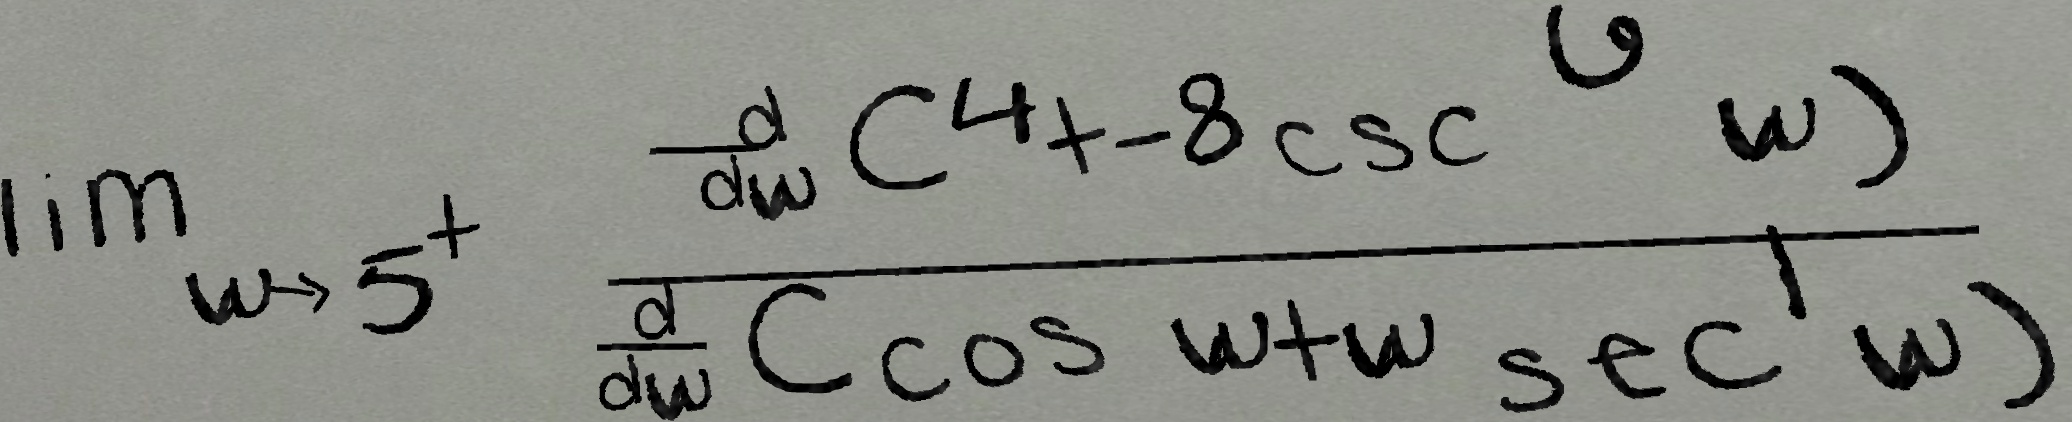 \lim_{w \to 5^+} \frac{\frac{d}{dw}(4+-8\csc^6 w)}{\frac{d}{dw}(\cos w+w\sec^1 w)}